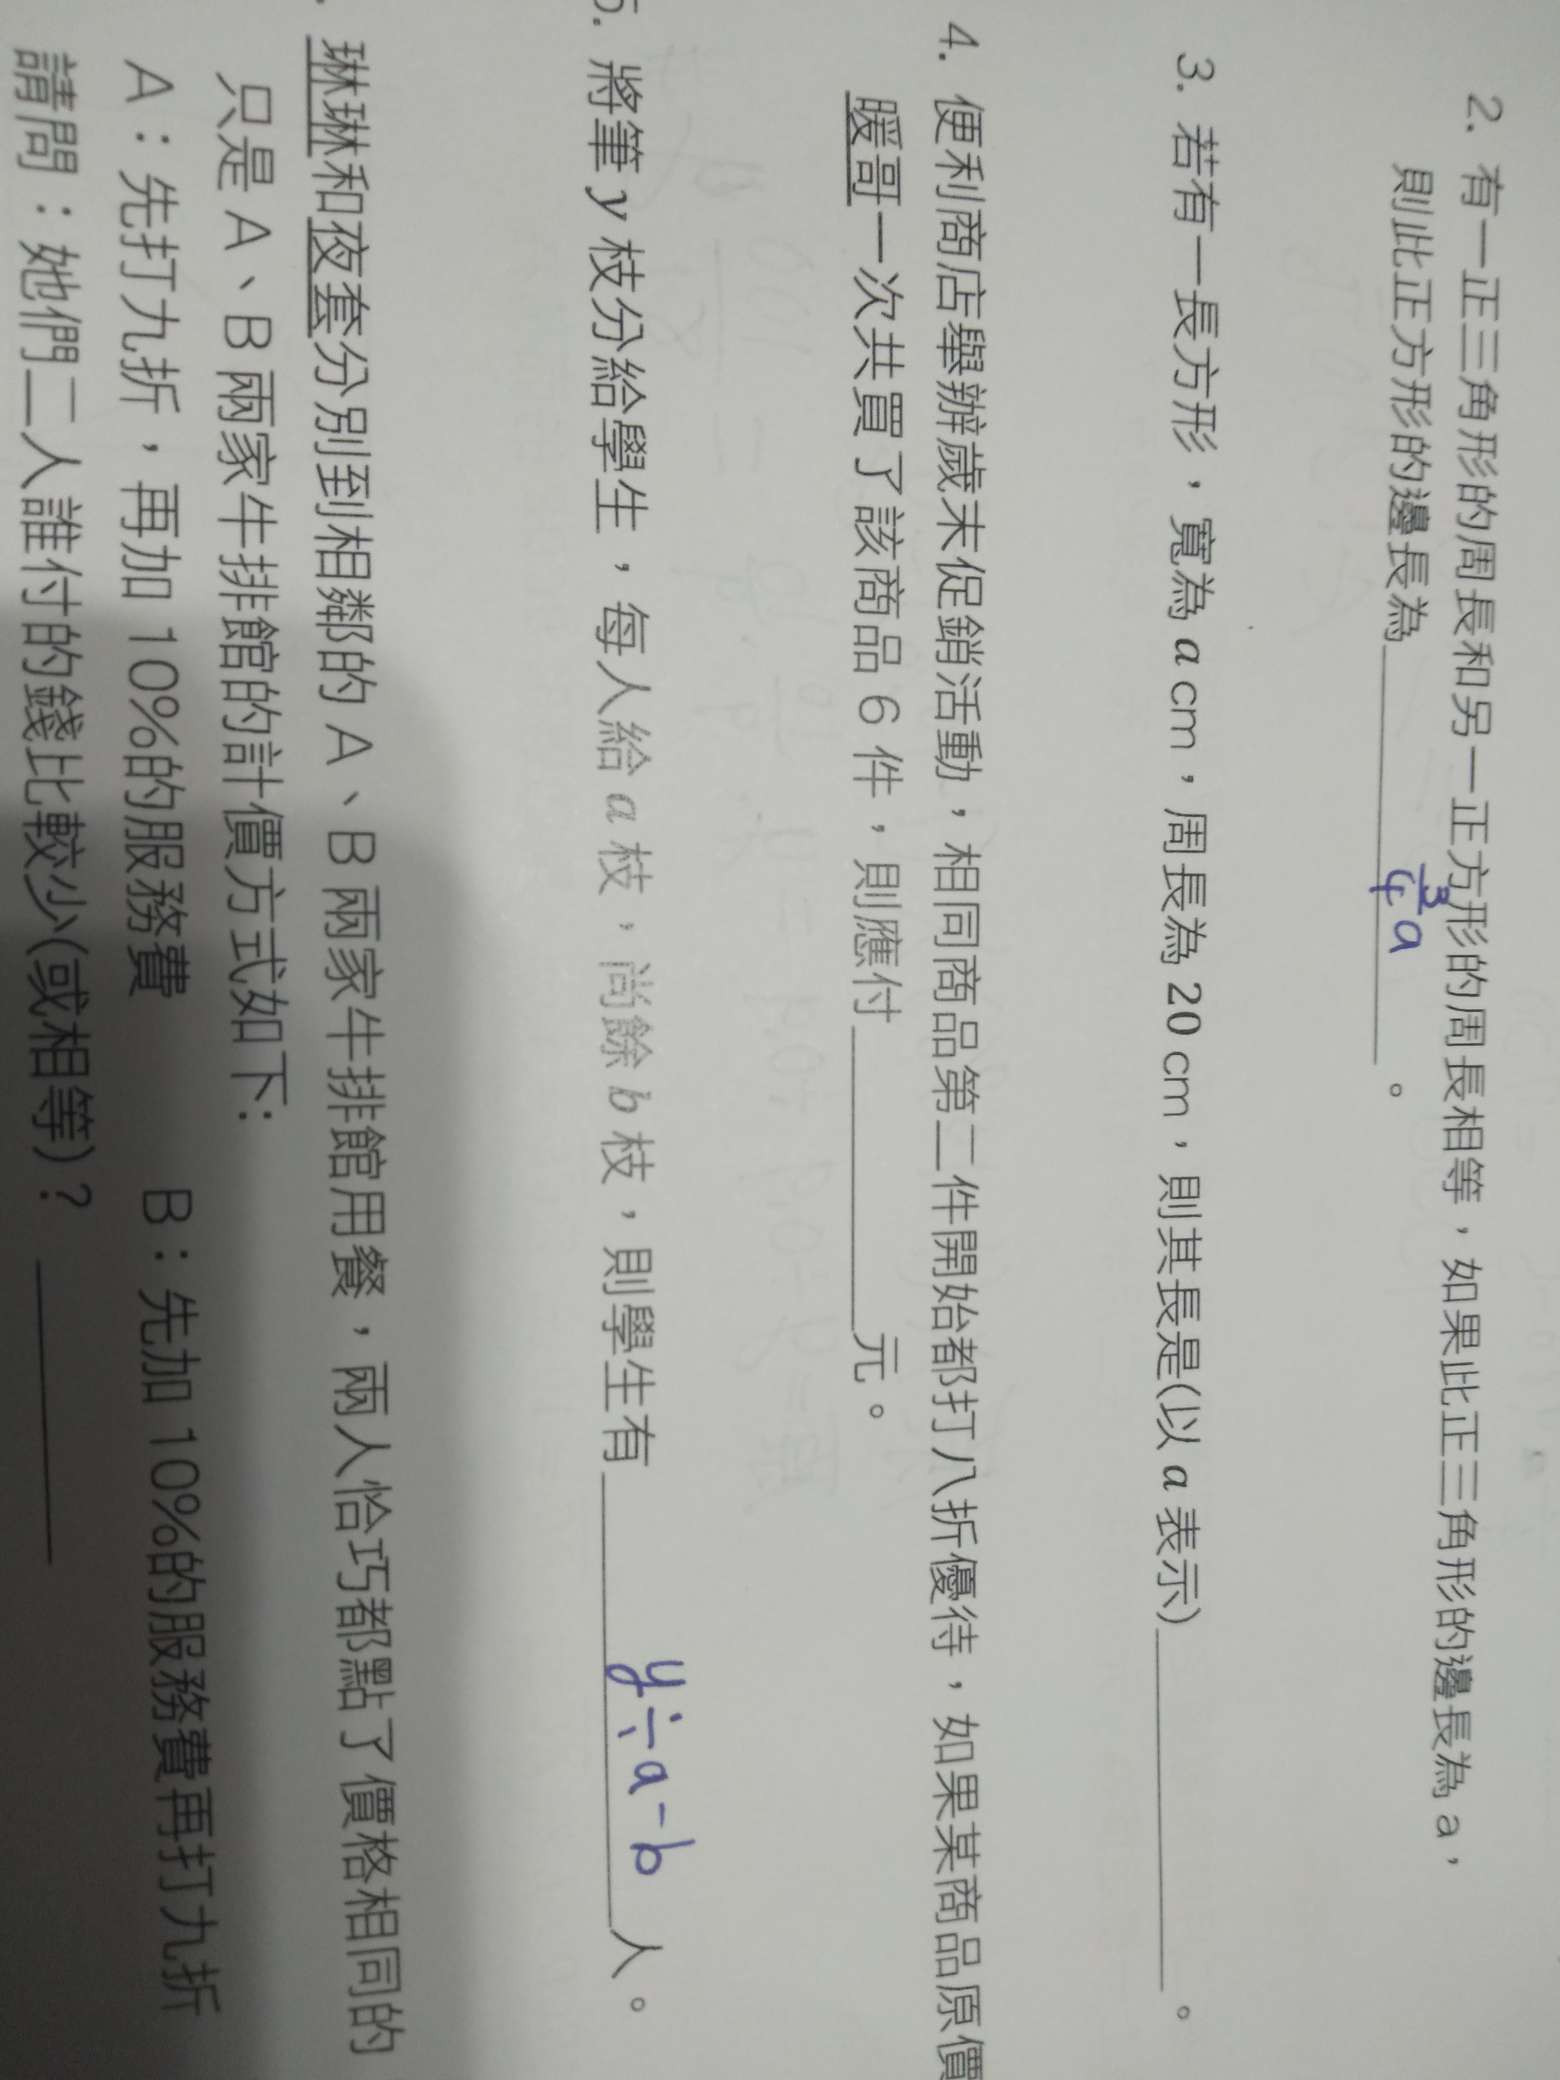 2. 有一正三角形的周長和另一正方形的周長相等，如果此正三角形的邊長為 a，
則此正方形的邊長為 3/4 a 。
3. 若有一長方形，寬為 a cm，周長為 20 cm，則其長是(以 a 表示)＿＿＿＿。
4. 便利商店舉辦歲末促銷活動，相同商品第二件開始都打八折優待，如果某商品原價
暖哥一次共買了該商品 6 件，則應付＿＿＿＿元。
5. 將筆 y 枝分給學生，每人給 a 枝，尚餘 b 枝，則學生有 y÷a-b 人。
琳琳和夜套分別到相鄰的 A、B 兩家牛排館用餐，兩人恰巧都點了價格相同的
只是 A、B 兩家牛排館的計價方式如下:
A：先打九折，再加 10%的服務費 B：先加 10%的服務費再打九折
請問：她們二人誰付的錢比較少(或相等)？＿＿＿＿